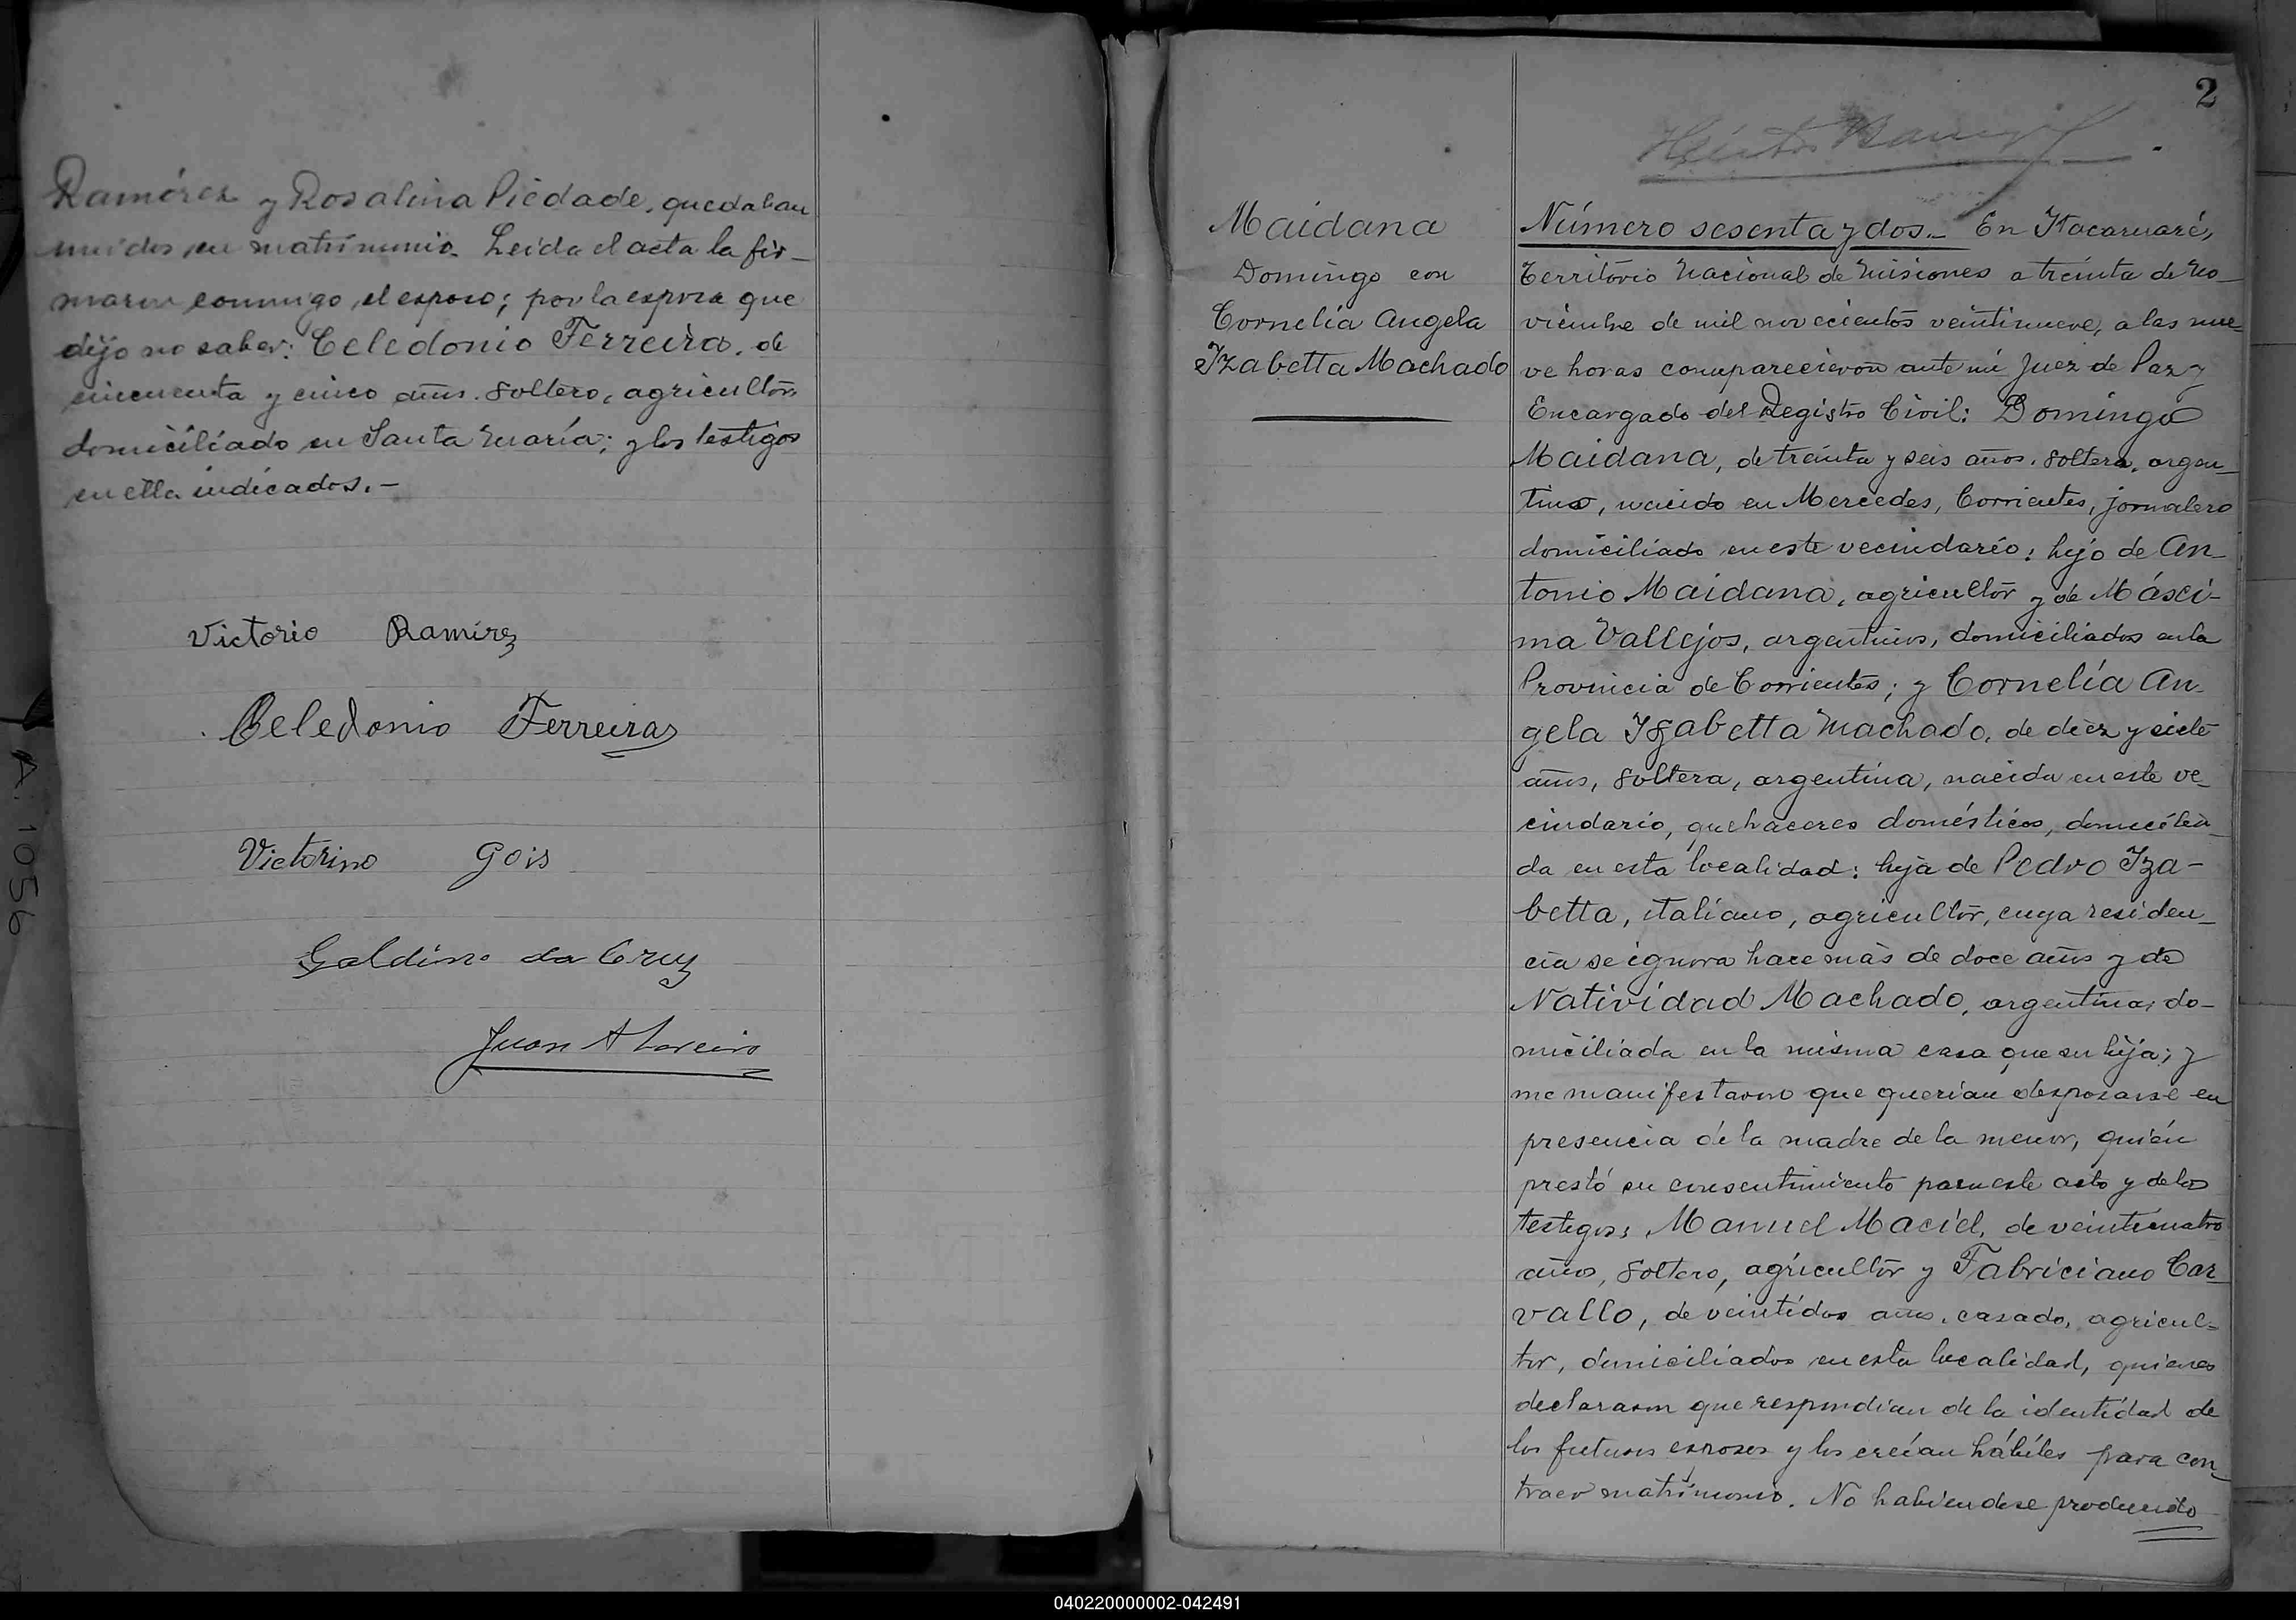 Ramírez y Rosalina Piedade, quedaban
unidos en matrimonio. Leida el acta la fir-
maron conmigo el esposo; por la esposa que
dijo no saber: Celedonio Ferreira, de
cincuenta y cinco años. soltero, agricultor,
domiciliado en Santa María; y los testigos
en ella indicados.-
Victorio Ramirez
Celedonio Ferreira
Victorino Gois
Galdino da Cruz
Juan A
A. 1056
2
Maidana
Domingo con
Cornelia Angela
Izabetta Machado
Número sesenta y dos.- En Itacaruaré,
Territorio Nacional de Misiones a treinta de No-
viembre de mil novecientos veintinueve, a las nue-
ve horas comparecieron ante mí Juez de Paz y
Encargado del Registro Civil: Domingo
Maidana, de treinta y seis años. soltero, argen-
tino, nacido en Mercedes, Corrientes, jornalero
domiciliado en este vecindario: hijo de An-
tonio Maidana, agricultor y de Másci-
ma Vallejos, argentinos, domiciliados en la
Provincia de Corrientes; y Cornelia An-
gela Izabetta Machado, de diez y siete
años, soltera, argentina, nacida en este ve-
cindario, quehaceres domésticos, domicilia-
da en esta localidad: hija de Pedro Iza-
betta, italiano, agricultor, cuya residen-
cia se ignora hace más de doce años y de
Natividad Machado, argentina, do-
miciliada en la misma casa que su hija; y
me manifestaron que querían desposarse en
presencia de la madre de la menor, quién
prestó su consentimiento para este acto y de los
testigos: Manuel Maciel, de veinticuatro
años, soltero, agricultor y Fabriciano Car-
vallo, de veintidos años, casado, agricul-
tor, domiciliados en esta localidad, quienes
declararon que respondían de la identidad de
los futuros esposos y los creían hábiles para con-
traer matrimonio. No habiendose producido
040220000002-042491